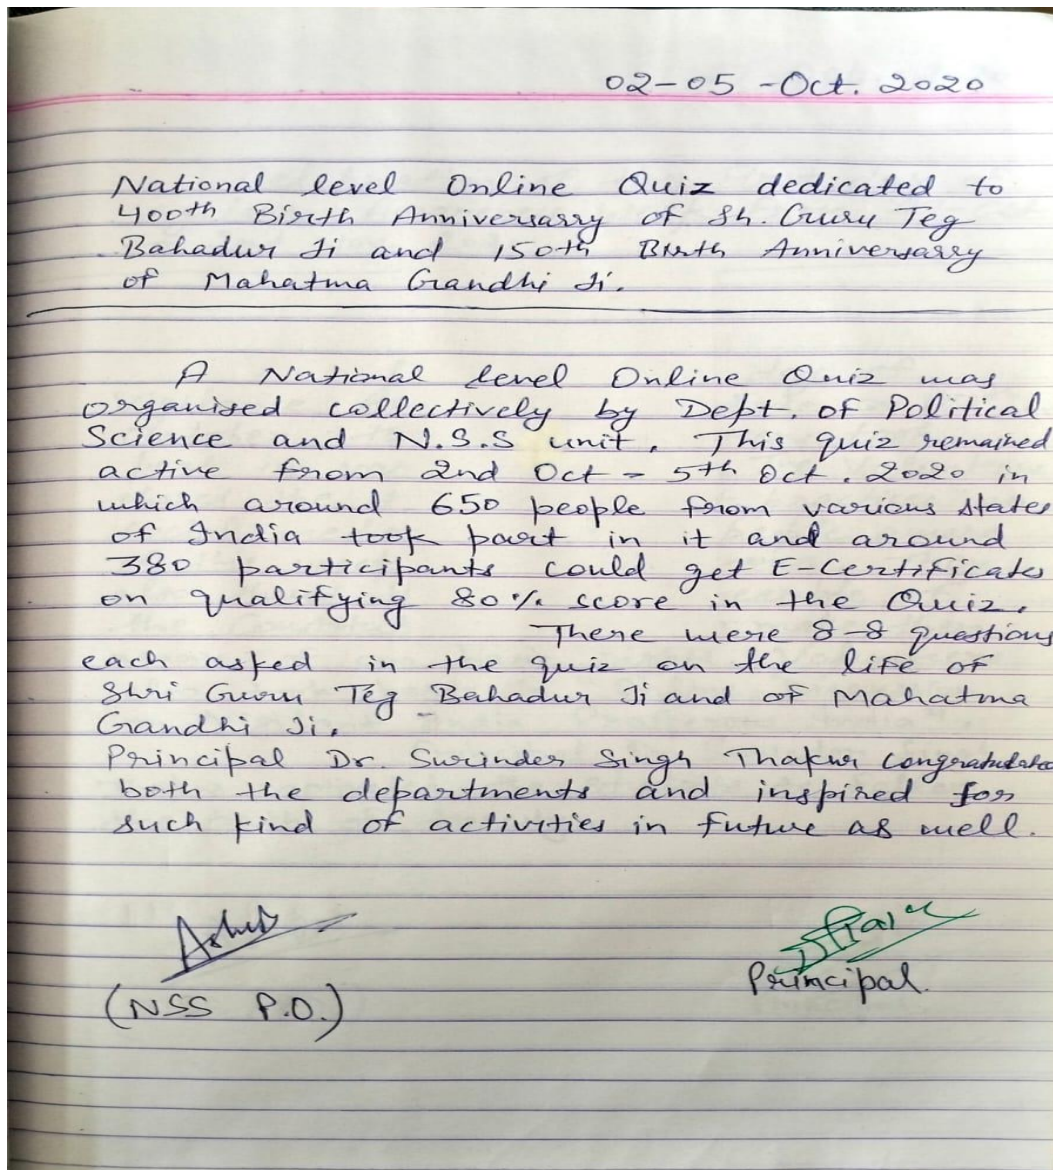 02-05-Oct. 2020
National level Online Quiz dedicated to
400th Birth Anniversarry of Sh. Guru Teg
Bahadur Ji and 150th Birth Anniversarry
of Mahatma Gandhi Ji.
A National level Online Quiz was
organised collectively by Dept. of Political
Science and N.S.S unit. This quiz remained
active from 2nd Oct - 5th Oct. 2020 in
which around 650 people from various states
of India took part in it and around
380 participants could get E-Certificates
on qualifying 80% score in the Quiz.
There were 8-8 questions
each asked in the quiz on the life of
Shri Guru Teg Bahadur Ji and of Mahatma
Gandhi Ji.
Principal Dr. Surinder Singh Thakur congratulated
both the departments and inspired for
such kind of activities in future as well.
(NSS P.O.)
Principal.